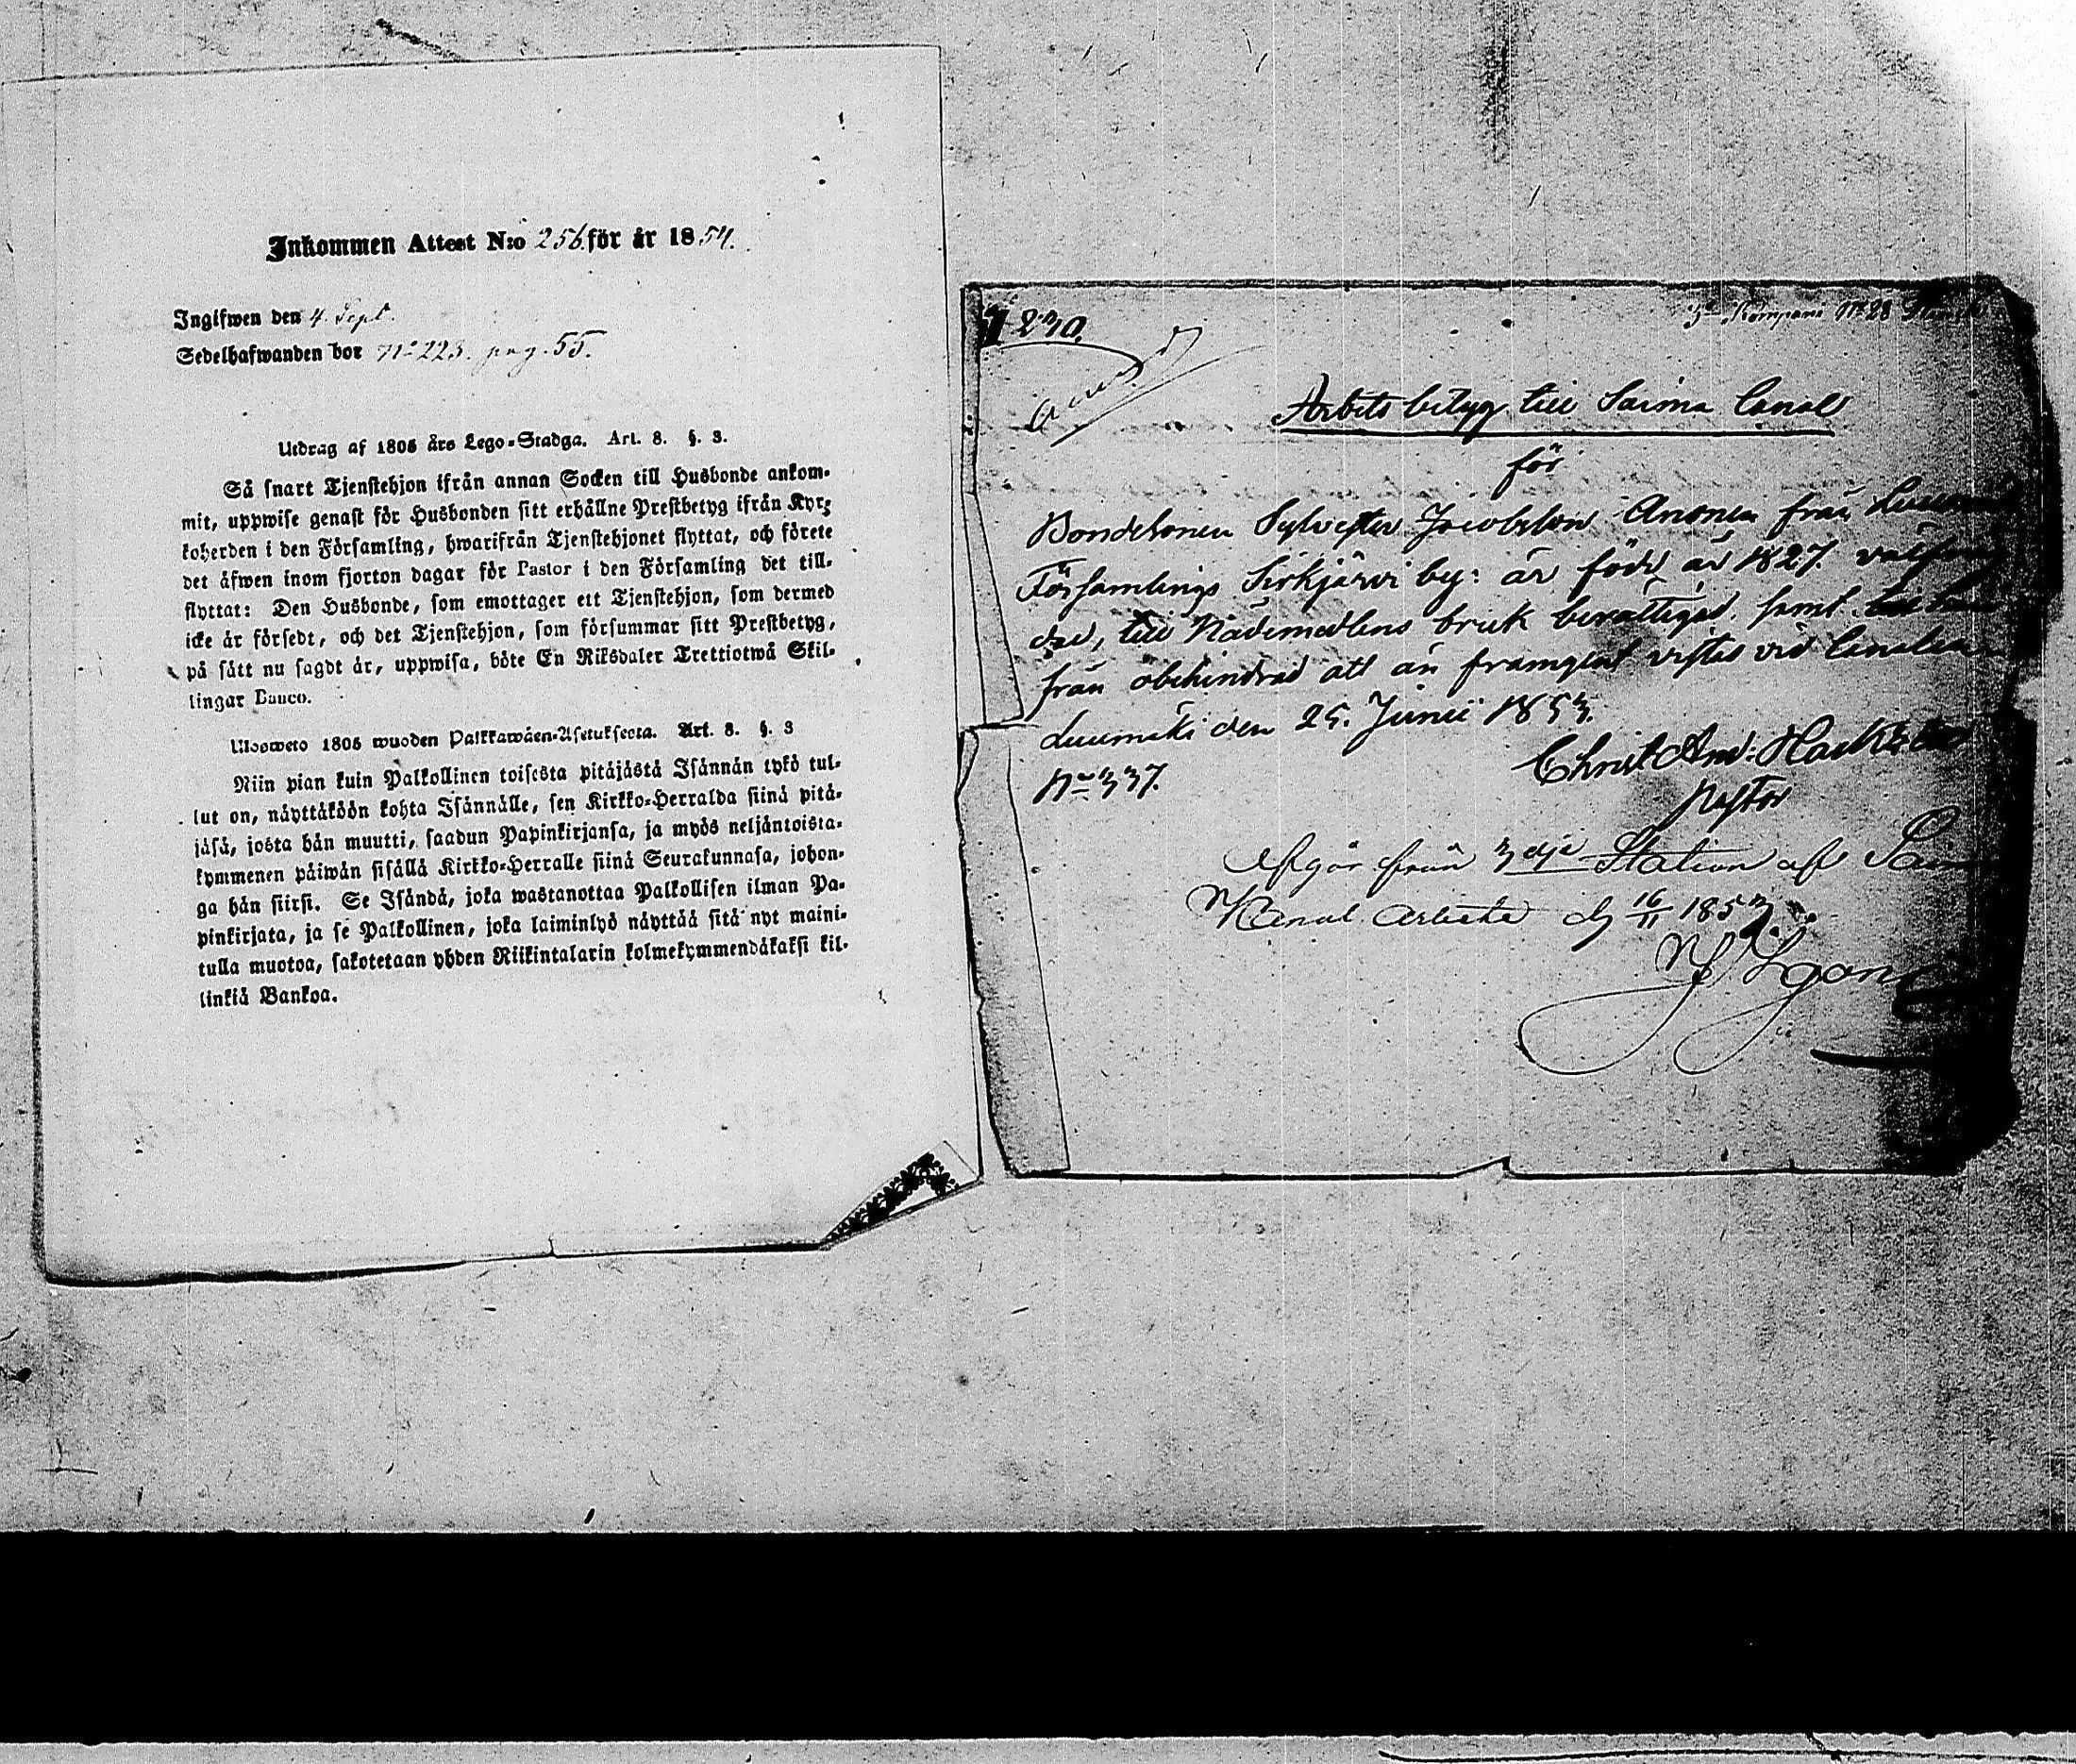 Inkommen Attest N:o 256. för år 1854.
Ingifwen den 4. Sept.
Sedelhafwanden bor No 223. pag. 55.
Utdrag af 1805 års Lego-Stadga. Art. 8. §. 3.
Så snart Tjenstehjon ifrån annan Socken till Husbonde ankom-
mit, uppwise genast för Husbonden sitt erhållne Prestbetyg ifrån Kyr-
koherden i den Församling, hwarifrån Tjenstehjonet flyttat, och förete
det äfwen inom fjorton dagar för Pastor i den Församling det till-
flyttat: Den Husbonde, som emottager ett Tjenstehjon, som dermed
icke är försedt, och det Tjenstehjon, som försummar sitt Prestbetyg,
på sätt nu sagdt är, uppwisa, böte En Riksdaler Trettiotwå Skil-
lingar Banco.
Ulosweto 1805 wuoden Palkkawäen-Asetuksesta. Art. 8. §. 3
Niin pian kuin Palkollinen toisesta pitäjästä Isännän tykö tul-
lut on, näyttäköön kohta Isännälle, sen Kirkko-Herralda siinä pitä-
jäsä, josta hän muutti, saadun Papinkirjansa, ja myös neljäntoista-
kymmenen päiwän sisällä Kirkko-Herralle siinä Seurakunnasa, johon-
ga hän siirsi. Se Isändä, joka wastanottaa Palkollisen ilman Pa-
pinkirjata, ja se Palkollinen, joka laiminlyö näyttää sitä nyt maini-
tulla muotoa, sakotetaan yhden Riikintalarin kolmekymmendäkaksi kil-
linkiä Bankoa.
230.
3e Kompani No 28
Arbets betyg till Saima Canal
för
Bondesonen Sylvester Jacobsson Anonen från
Församlings Sirkjärvi by: är född år 1827.
till Nådemedlens bruk berättigad, samt
från obehindrad att än framgent vistas vid Canalen
Luumäki den 25. Junii 1853.
No 337.
Christ And:
Pastor
Afgår från 3dje Station af
Kanal Arbete d 16/11 1853.